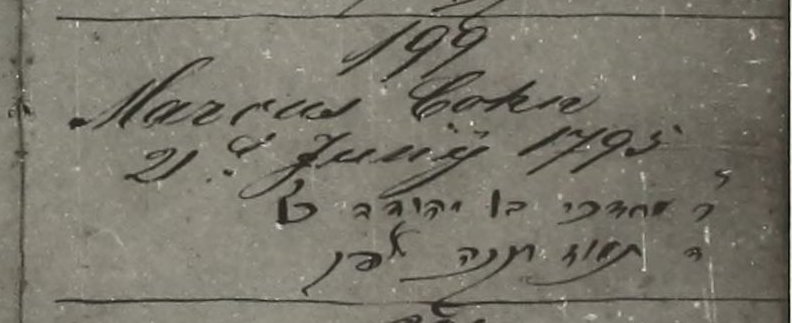 199
Marcus Cohn
21. Junÿ 1795
ר' מרדכי בן יהודה
ד תמוז תקנה לפק